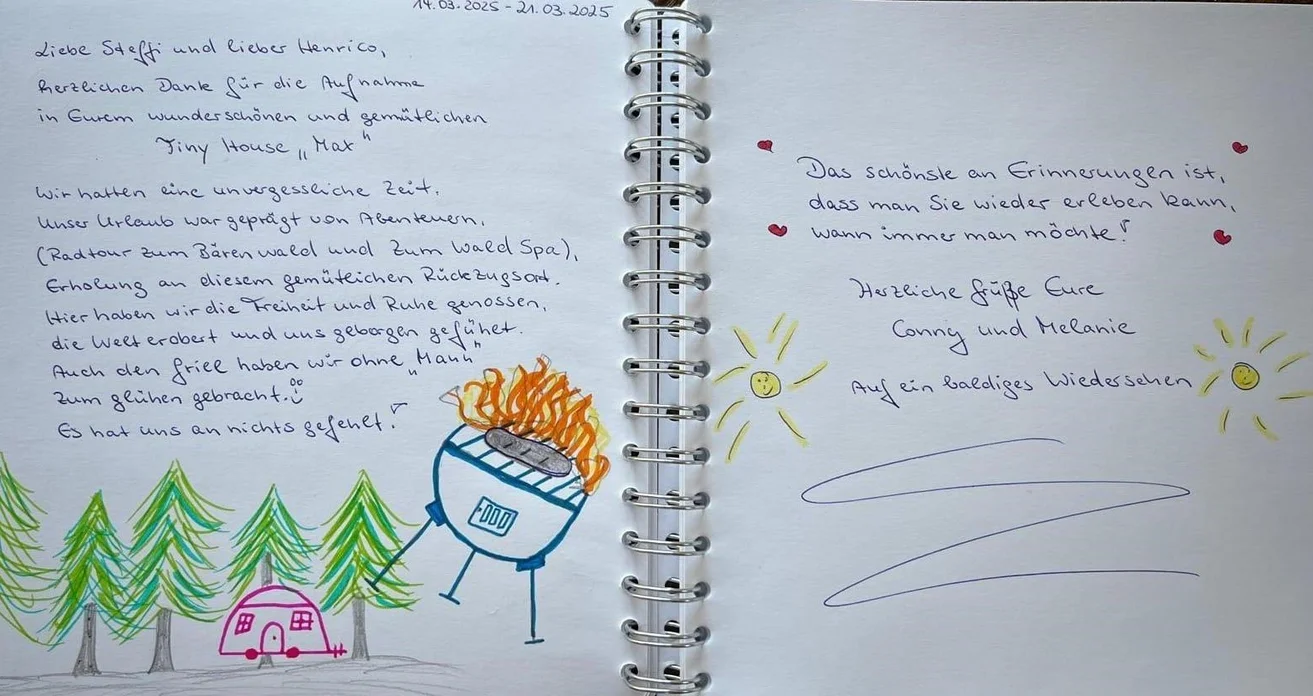 14.03.2025 - 21.03.2025
Liebe Steffi und lieber Henrico,
herzlichen Dank für die Aufnahme
in Eurem wunderschönen und gemütlichen
Tiny House „Max"
Wir hatten eine unvergessliche Zeit.
Unser Urlaub war geprägt von Abenteuern,
(Radtour zum Bärenwald und zum Wald Spa),
Erholung an diesem gemütlichen Rückzugsort.
Hier haben wir die Freiheit und Ruhe genossen,
die Welt erobert und uns geborgen gefühlt.
Auch den Grill haben wir ohne „Mann"
zum glühen gebracht.
Es hat uns an nichts gefehlt!
Das schönste an Erinnerungen ist,
dass man Sie wieder erleben kann,
wann immer man möchte!
Herzliche Grüße Eure
Conny und Melanie
Auf ein baldiges Wiedersehen